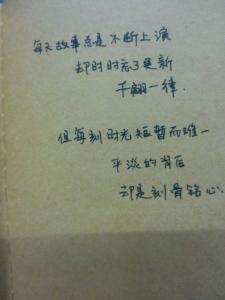 每天故事总是不断上演
却时时忘了更新
千翩一律.
但每刻时光短暂而唯一
平淡的背后
却是刻骨铭心.